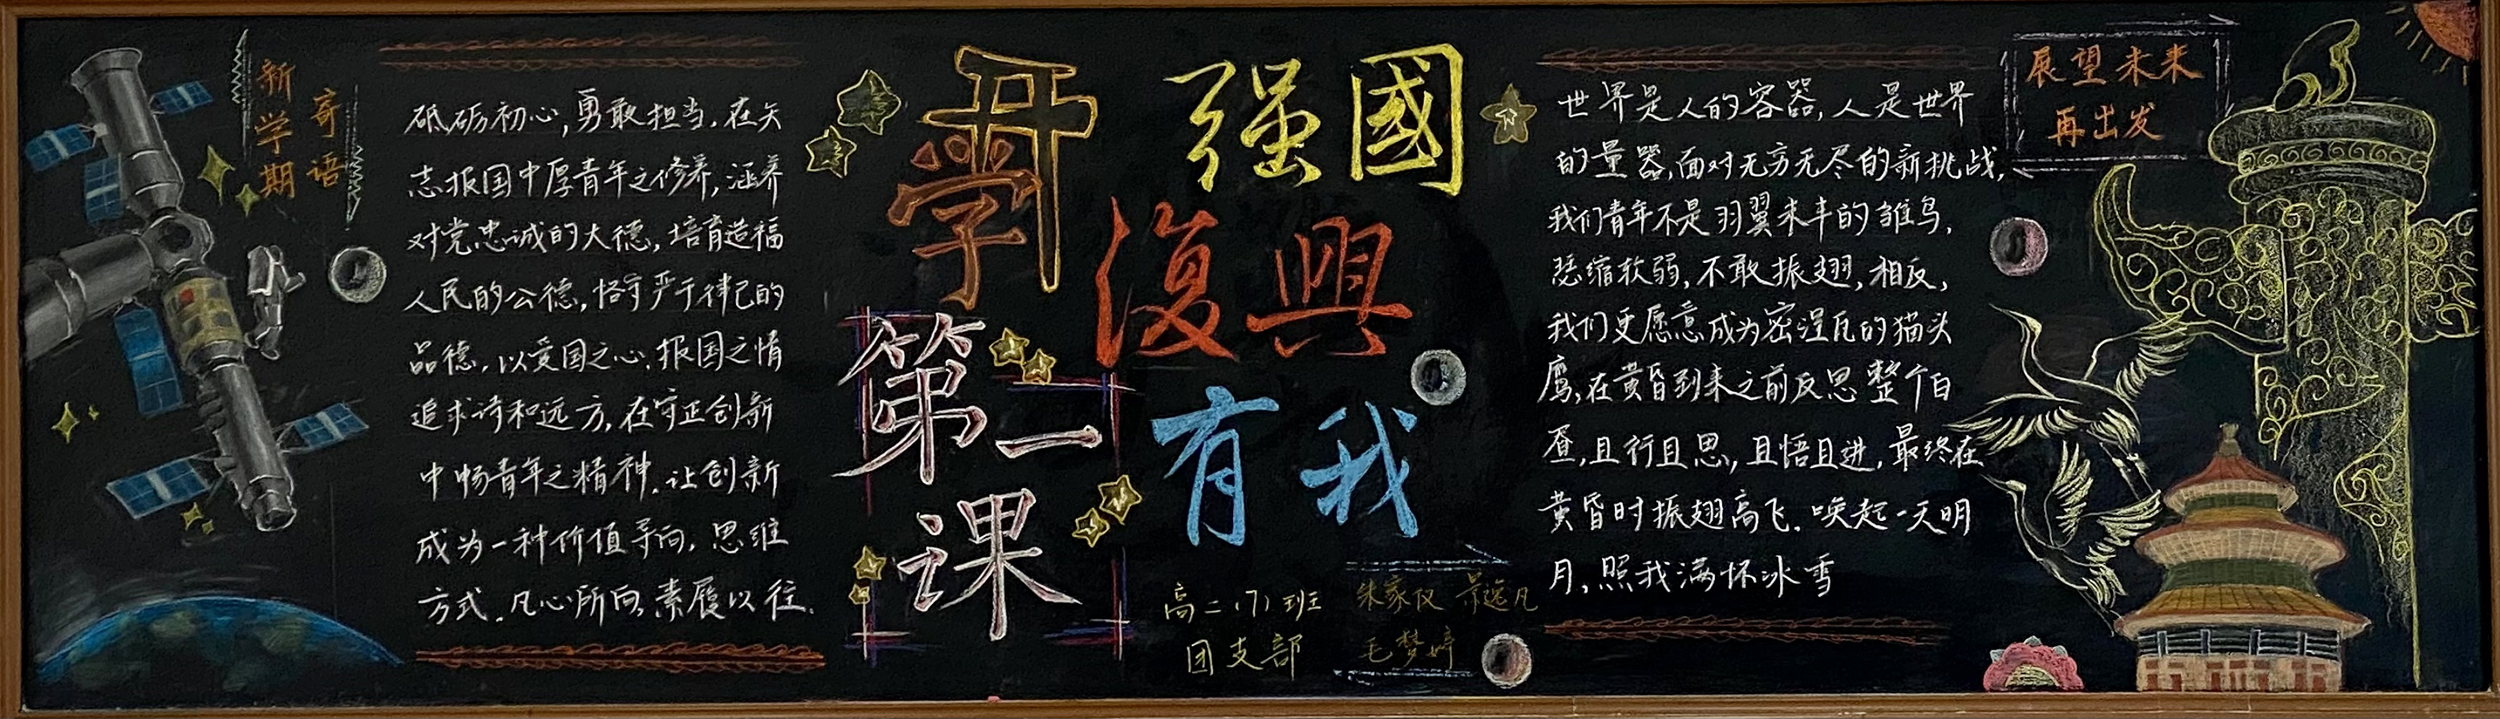 新学期
寄语
砥砺初心,勇敢担当,在矢
志报国中厚青年之修养,涵养
对党忠诚的大德,培育造福
人民的公德,恪守严于律己的
品德,以爱国之心,报国之情
追求诗和远方,在守正创新
中畅青年之精神,让创新
成为一种价值导向,思维
方式,凡心所向,素履以往.
开
學
第一
课
强國
復興
有我
高二(7)班
团支部
朱家仪 景逸凡
毛梦婷
世界是人的容器,人是世界
的量器,面对无穷无尽的新挑战,
我们青年不是羽翼未丰的雏鸟,
瑟缩软弱,不敢振翅,相反,
我们更愿意成为密涅瓦的猫头
鹰,在黄昏到来之前反思整个白
昼,且行且思,且悟且进,最终在
黄昏时振翅高飞,唤起一天明
月,照我满怀冰雪
展望未来
再出发